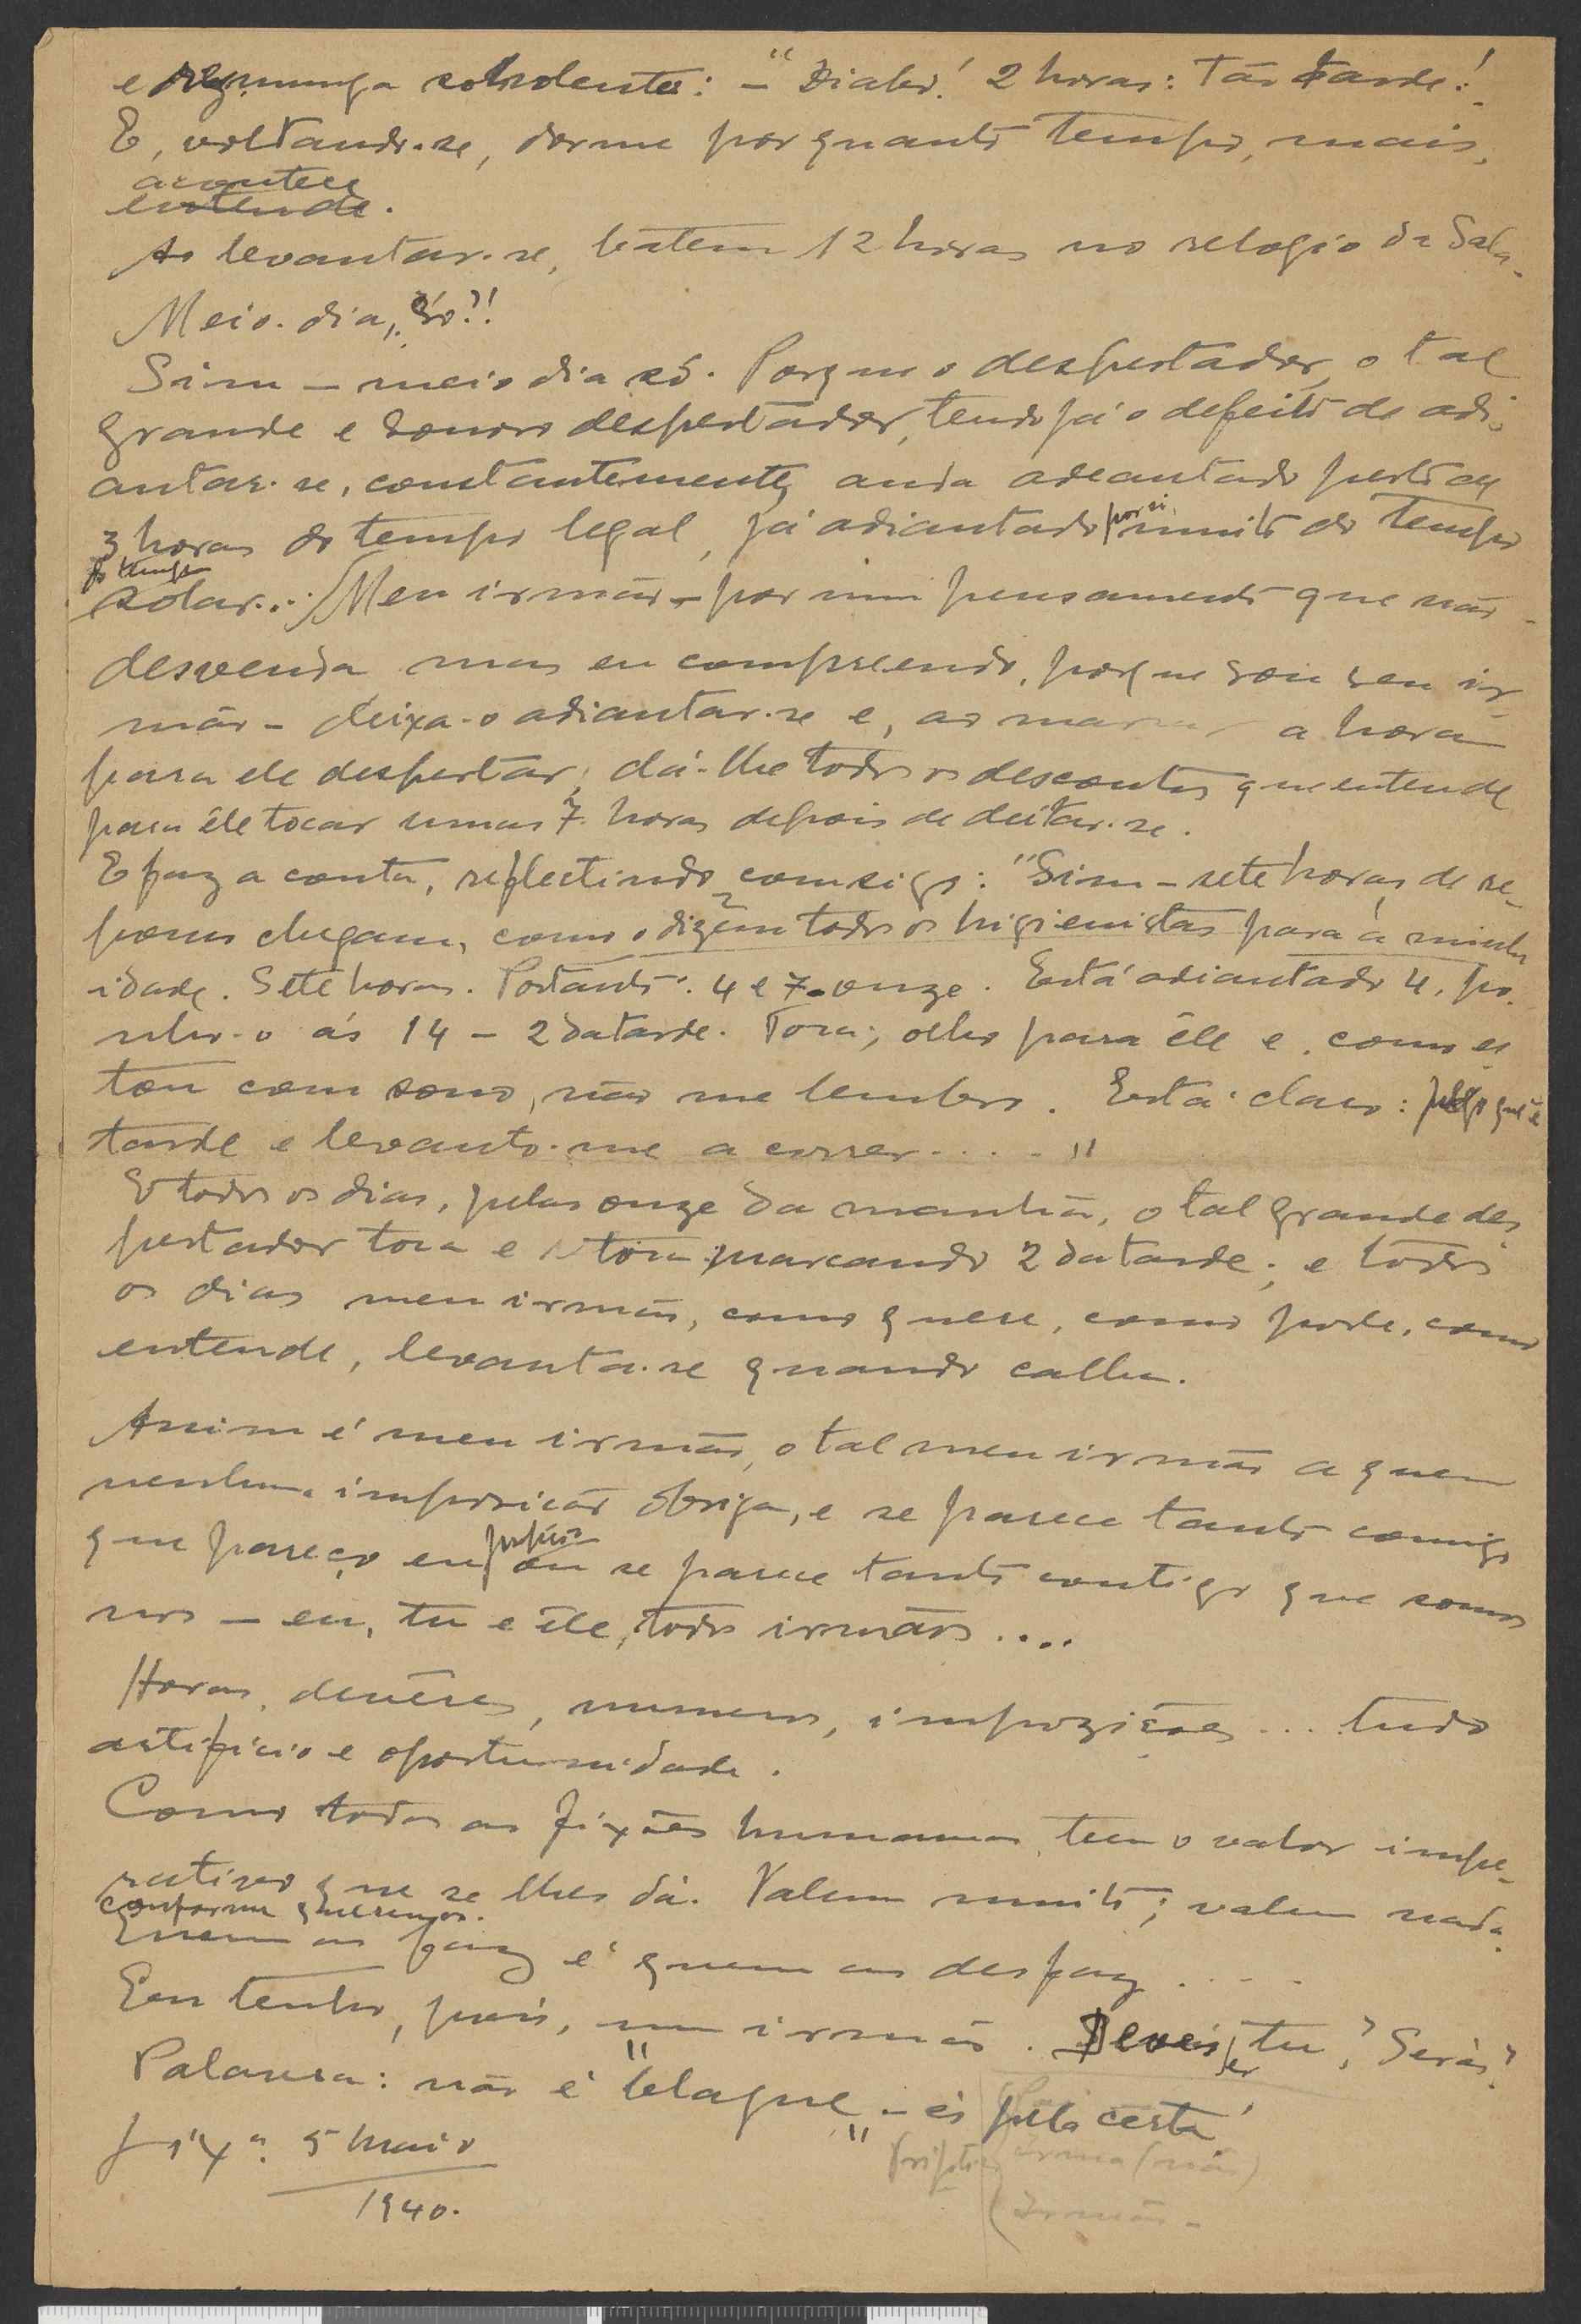 e resmunga sonolento: – "Diabo! 2 horas: Tão tarde!
E, voltando-se, dorme por quanto tempo, mais,
acontece
entende.
Ao levantar-se, batem 12 horas no relogio da Sala.
Meio-dia, só?!
Sim – meio dia só. Porque o despertador, o tal
grande e sonoro despertador, tendo já o defeito de adi-
antar-se, constantemente, anda adeantado perto de
3 horas do tempo legal, já adiantado por si, muito do tempo
do tempo
solar... Meu irmão – por um pensamento que não
desvenda mas eu compreendo, porque sou seu ir-
mão – deixa-o adiantar-se e, ao marcar a hora
para ele despertar, dá-lhe todos os descontos que entende
para êle tocar umas 7 horas depois de deitar-se.
E faz a conta, reflectindo comsigo: "Sim – sete horas de re-
pouso chegam, como o dizem todos os higienistas para a minha
idade. Sete horas. Portanto: 4 e 7 – onze. Está adiantado 4, po-
nho-o ás 14 – 2 da tarde. Toca; olho para êle e, como es
tou com sono, não me lembro. Está claro: julgo que é
tarde e levanto-me a correr . . . . "
E todos os dias, pelas onze da manhã, o tal grande des
pertador toca e toca marcando 2 da tarde; e todos
os dias meu irmão, como quere, como pode, como
entende, levanta-se quando calha.
Assim é meu irmão, o tal meu irmão a quem
nenhuma imposição obriga, e se parece tanto comigo
que pareço eu próprio ou se parece tanto contigo que somos
nós – eu, tu e êle, todos irmãos ....
Horas, devêres, numeros, impozições ... tudo
artificio e oportunidade.
Como todas as fixões humanas, teem o valor impe-
rativo que se lhes dá. Valem muito; valem nada.
conforme queremos.
Quem as faz é quem as desfaz . . . .
Eu tenho, pois, um irmão. Deveis ser tu? Serás?
Palavra: não é "blague" – és pela certa!
Lixª. 5 maio
1940.
(Irmão.